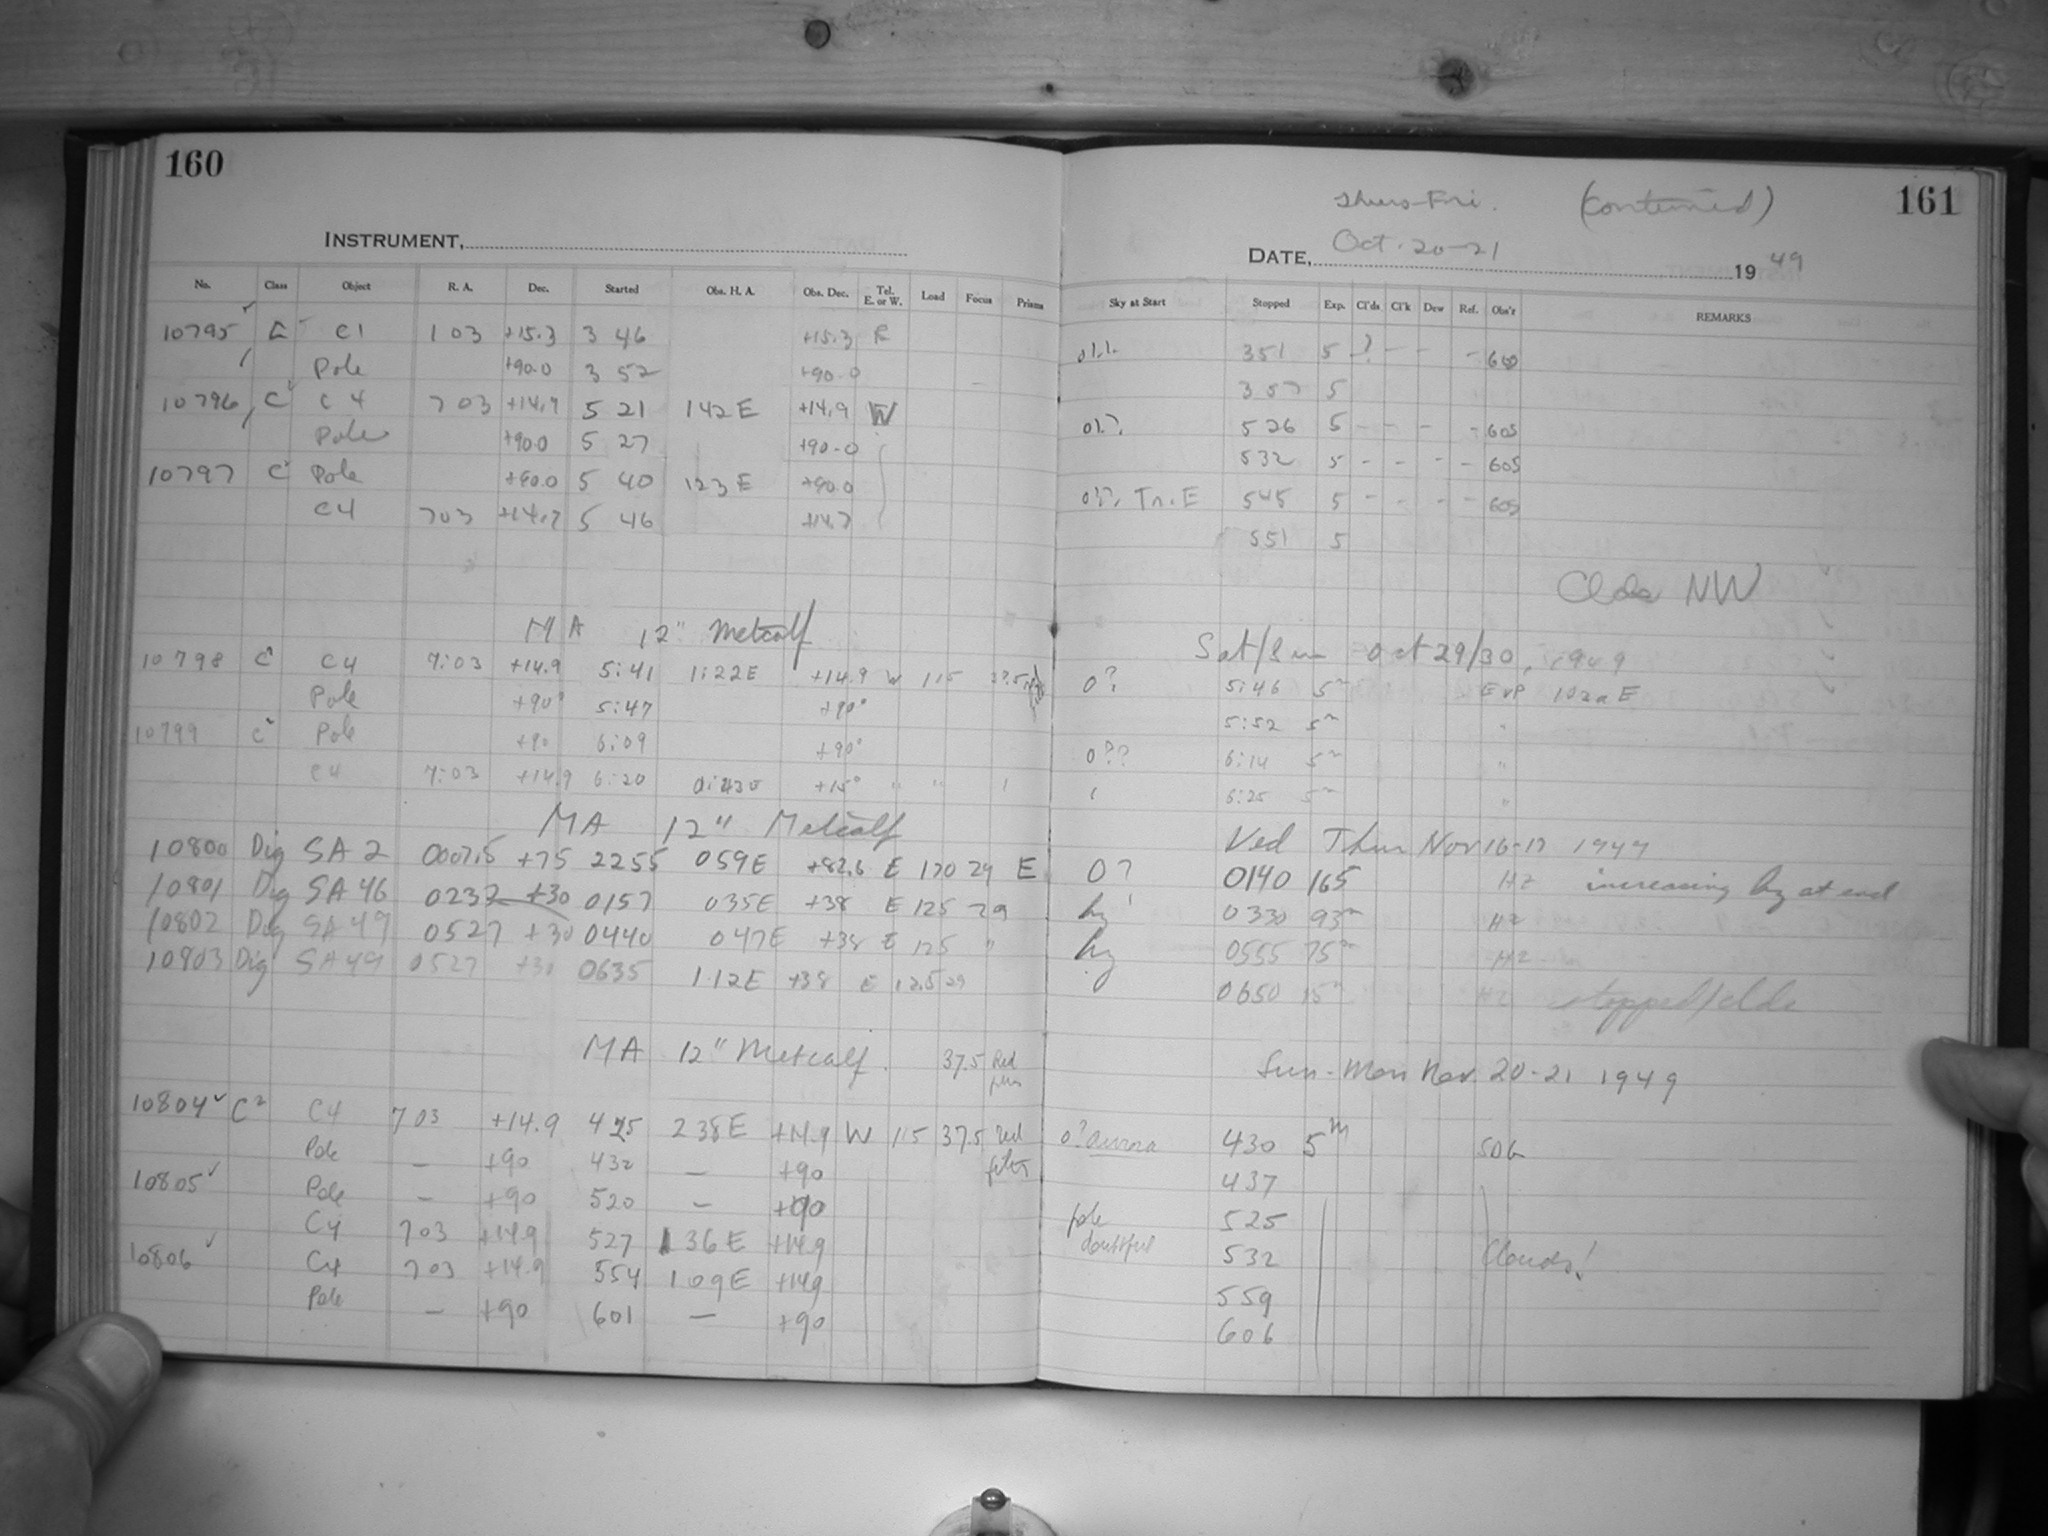 160
INSTRUMENT,
No. Class Object R. A. Dec. Started Obs. H. A. Obs. Dec. Tel. E. or W. Load Focus Prisms
10795 C C1 1 03 +15.3 3 46 +15.3 E
Pole +90.0 3 52 +90.0
10796 C C4 7 03 +14.9 5 21 142E +14.9 W
Pole +90.0 5 27 +90.0
10797 C Pole +90.0 5 40 123E +90.0
C4 703 +14.9 5 46
MA 12" Metcalf
10798 C C4 7:03 +14.9 5:41 1:22E +14.9 W 115 37.5
Pole +90° 5:47 +90°
10799 C Pole +90 6:09 +90°
C4 7:03 +14.9 6:20 +15° " "
MA 12" Metcalf
10800 Dig SA 2 0007.5 +75 2255 059E +82.6 E 120 29 E
10801 Dig SA 46 0232 +30 0157 035E +38 E 125 29
10802 Dig SA 49 0527 +30 0440 047E +38 E 125 "
10803 Dig SA 49 0527 +30 0635 1.12E +38 E 125 29
MA 12" Metcalf. 37.5 Red
10804 ✓ C2 C4 703 +14.9 425 238E +14.9 W 115 37.5 red filter
Pole — +90 432 — +90
10805 ✓ Pole — +90 520 — +90
C4 703 +14.9 527 136E +14.9
10806 ✓ C4 703 +14.9 554 109E +149
Pole — +90 601 — +90
Thurs-Fri. (continued) 161
DATE, Oct. 20-21 1949
Sky at Start Stopped Exp. Cl'ds Cl'k Dew Ref. Obs'r REMARKS
351 5 ? - - -
357 5
526 5 - - - - 60S
532 5 - - - - 60S
Tr. E 545 5 - - - - 60S
551 5
Clds NW
Sat/Sun Oct 29/30, 1949
0? 5:46 5m EVP 103aE
5:52 5m "
0?? 6:14 5m "
6:25 5m "
Wed Thur Nov 16-17 1949
0? 0140 165 HZ increasing hz at end
hz 0330 93m HZ
hz 0555 75m HZ
0650 15m HZ stopped/clds
Sun-Mon Nov. 20-21 1949
0? aurora 430 5m
437
pole doubtful 525
532 Clouds!
559
606